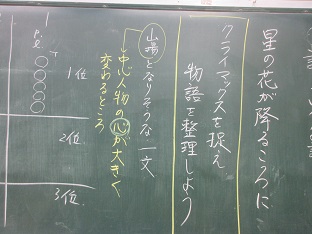 星の花が降るころに
クライマックスを捉え
物語を整理しよう
山場となりそうな一文
→中心人物の心が大きく
変わるところ
1位
○○○○
2位
3位